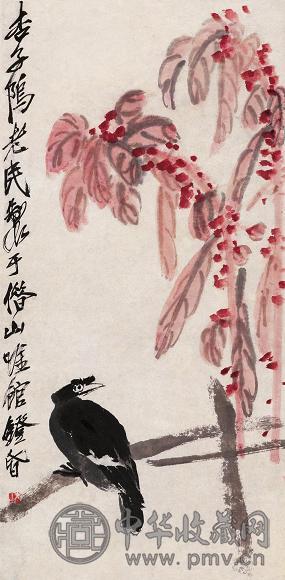 杏子隖老民製于借山唫館鐙昏
中华收藏网
www.pmv.cn